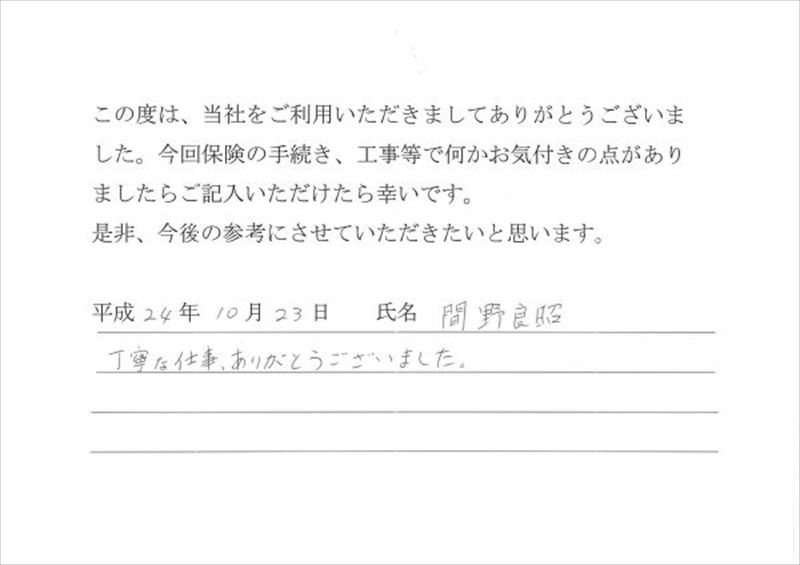 この度は、当社をご利用いただきましてありがとうございま
した。今回保険の手続き、工事等で何かお気付きの点があり
ましたらご記入いただけたら幸いです。
是非、今後の参考にさせていただきたいと思います。
平成 24 年 10 月 23 日 氏名 間野良昭
丁寧な仕事、ありがとうございました。